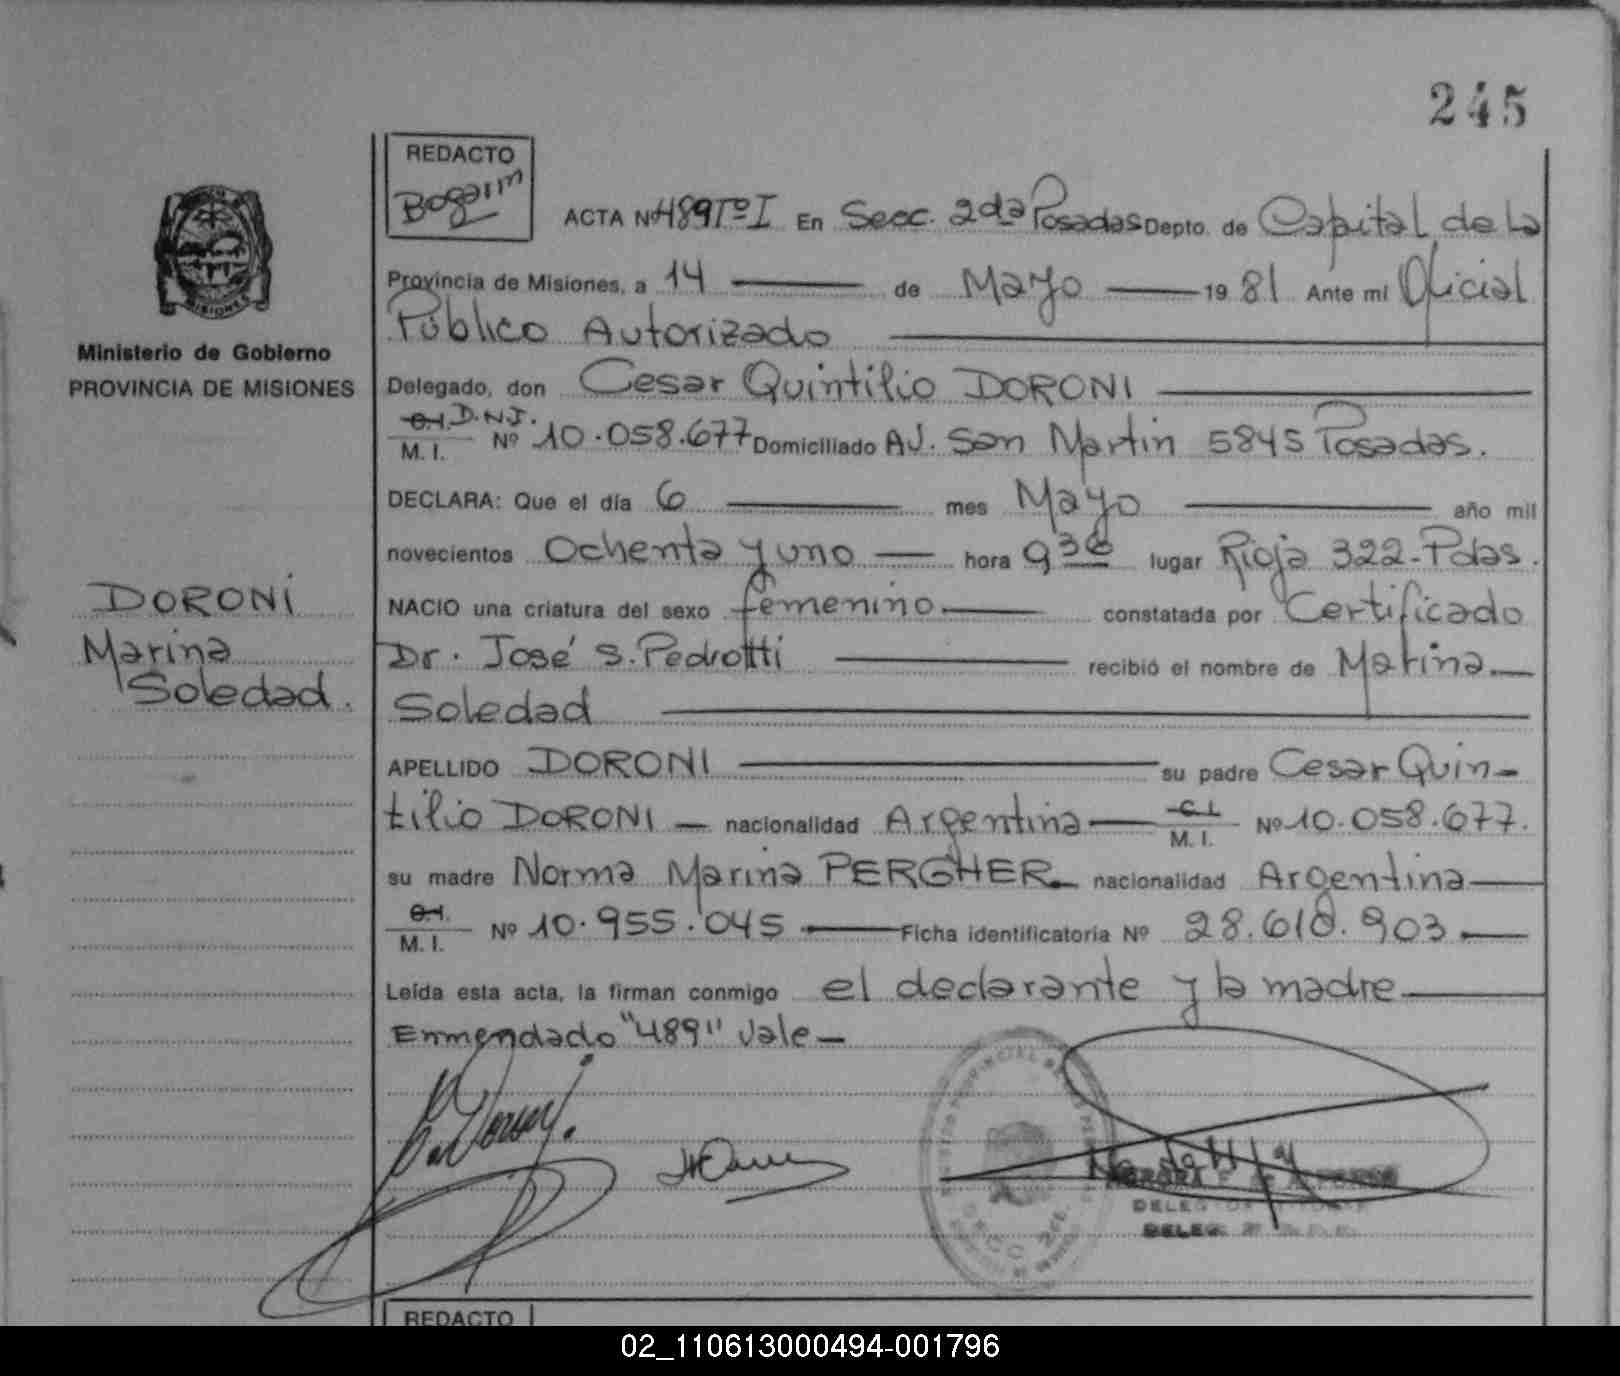 245
REDACTO
Bogarin
ACTA Nº 489 Tº I En Secc. 2da Posadas Depto. de Capital de la
Provincia de Misiones, a 14 de Mayo 1981 Ante mi Oficial
Público Autorizado
MISIONES
Ministerio de Gobierno
PROVINCIA DE MISIONES
Delegado, don Cesar Quintilio DORONI
C.I. D.N.I.
M. I. Nº 10.058.677 Domiciliado AV. San Martin 5845 Posadas.
DECLARA: Que el día 6 mes Mayo año mil
novecientos Ochenta y uno hora 9 30 lugar Rioja 322-Pdas.
DORONI
Marina
Soledad.
NACIO una criatura del sexo femenino constatada por Certificado
Dr. José S. Pedrotti recibió el nombre de Marina
Soledad
APELLIDO DORONI su padre Cesar Quin-
tilio DORONI nacionalidad Argentina C.I. M. I. Nº 10.058.677.
su madre Norma Marina PERGHER nacionalidad Argentina
C.I. M. I. Nº 10.955.045 Ficha identificatoria Nº 28.618.903
Leída esta acta, la firman conmigo el declarante y la madre
Enmendado "489" Vale
DELEG
REDACTO
02_110613000494-001796